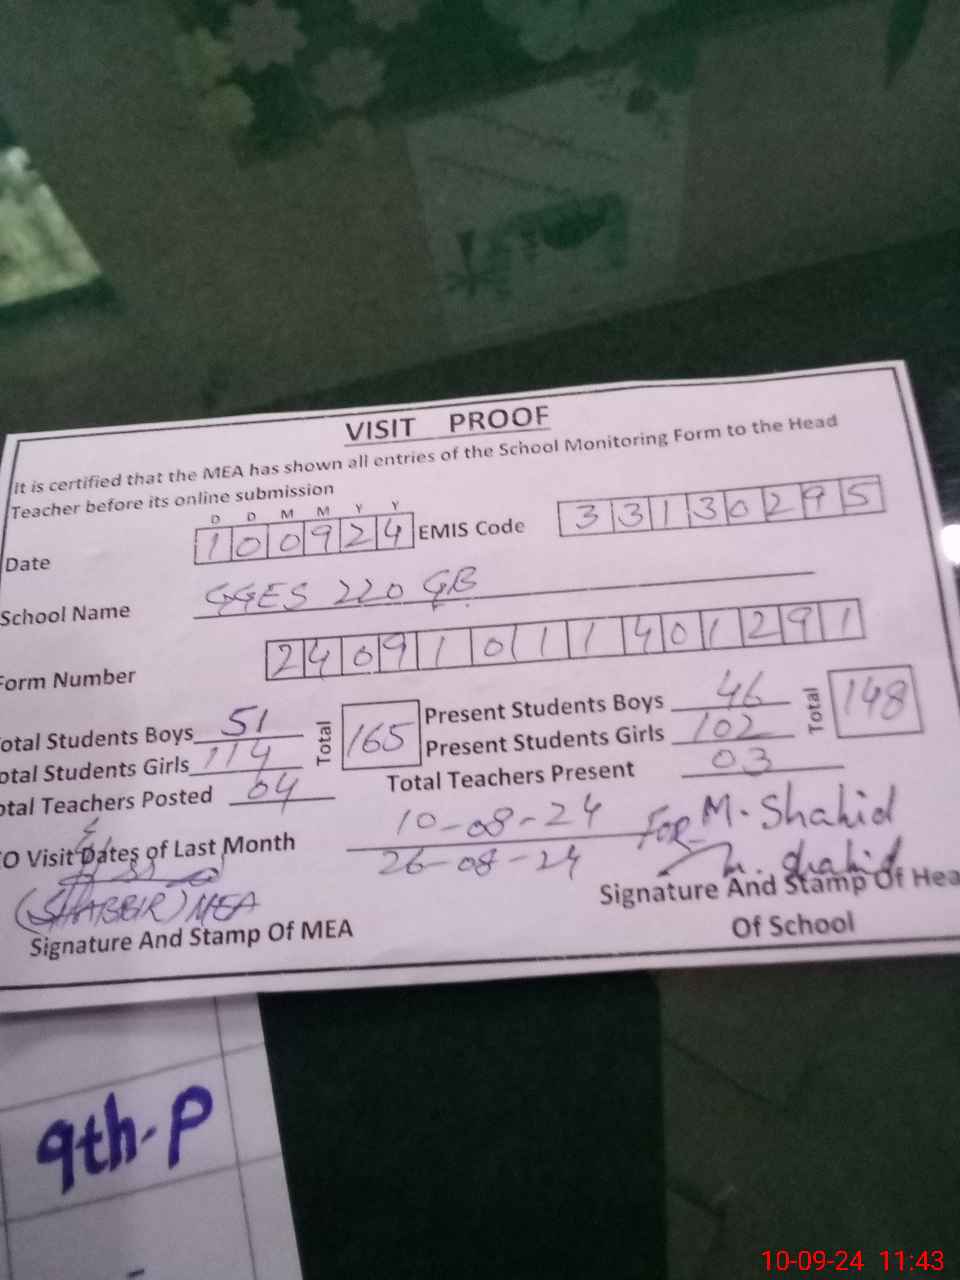 VISIT PROOF
It is certified that the MEA has shown all entries of the School Monitoring Form to the Head
Teacher before its online submission
D D M M Y Y
Date 100924 EMIS Code 33130295
School Name GGES 220 GB
Form Number 240910111401291
otal Students Boys 51 Total 165 Present Students Boys 46 Total 148
otal Students Girls 114 Present Students Girls 102
otal Teachers Posted 04 Total Teachers Present 03
EO Visit Dates of Last Month 10-08-24 For M. Shahid
26-08-24 M. Shahid
(SHABBIR) MEA
Signature And Stamp Of MEA
Signature And Stamp Of Hea
Of School
9th-P
10-09-24 11:43